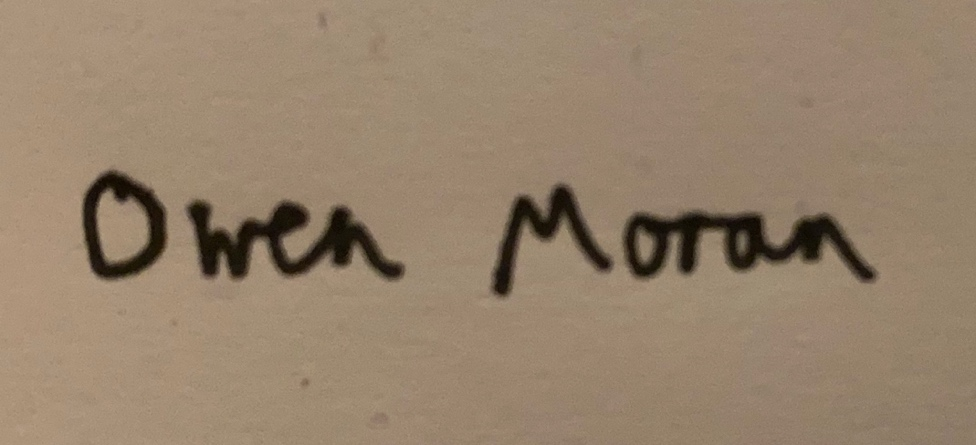 Owen Moran